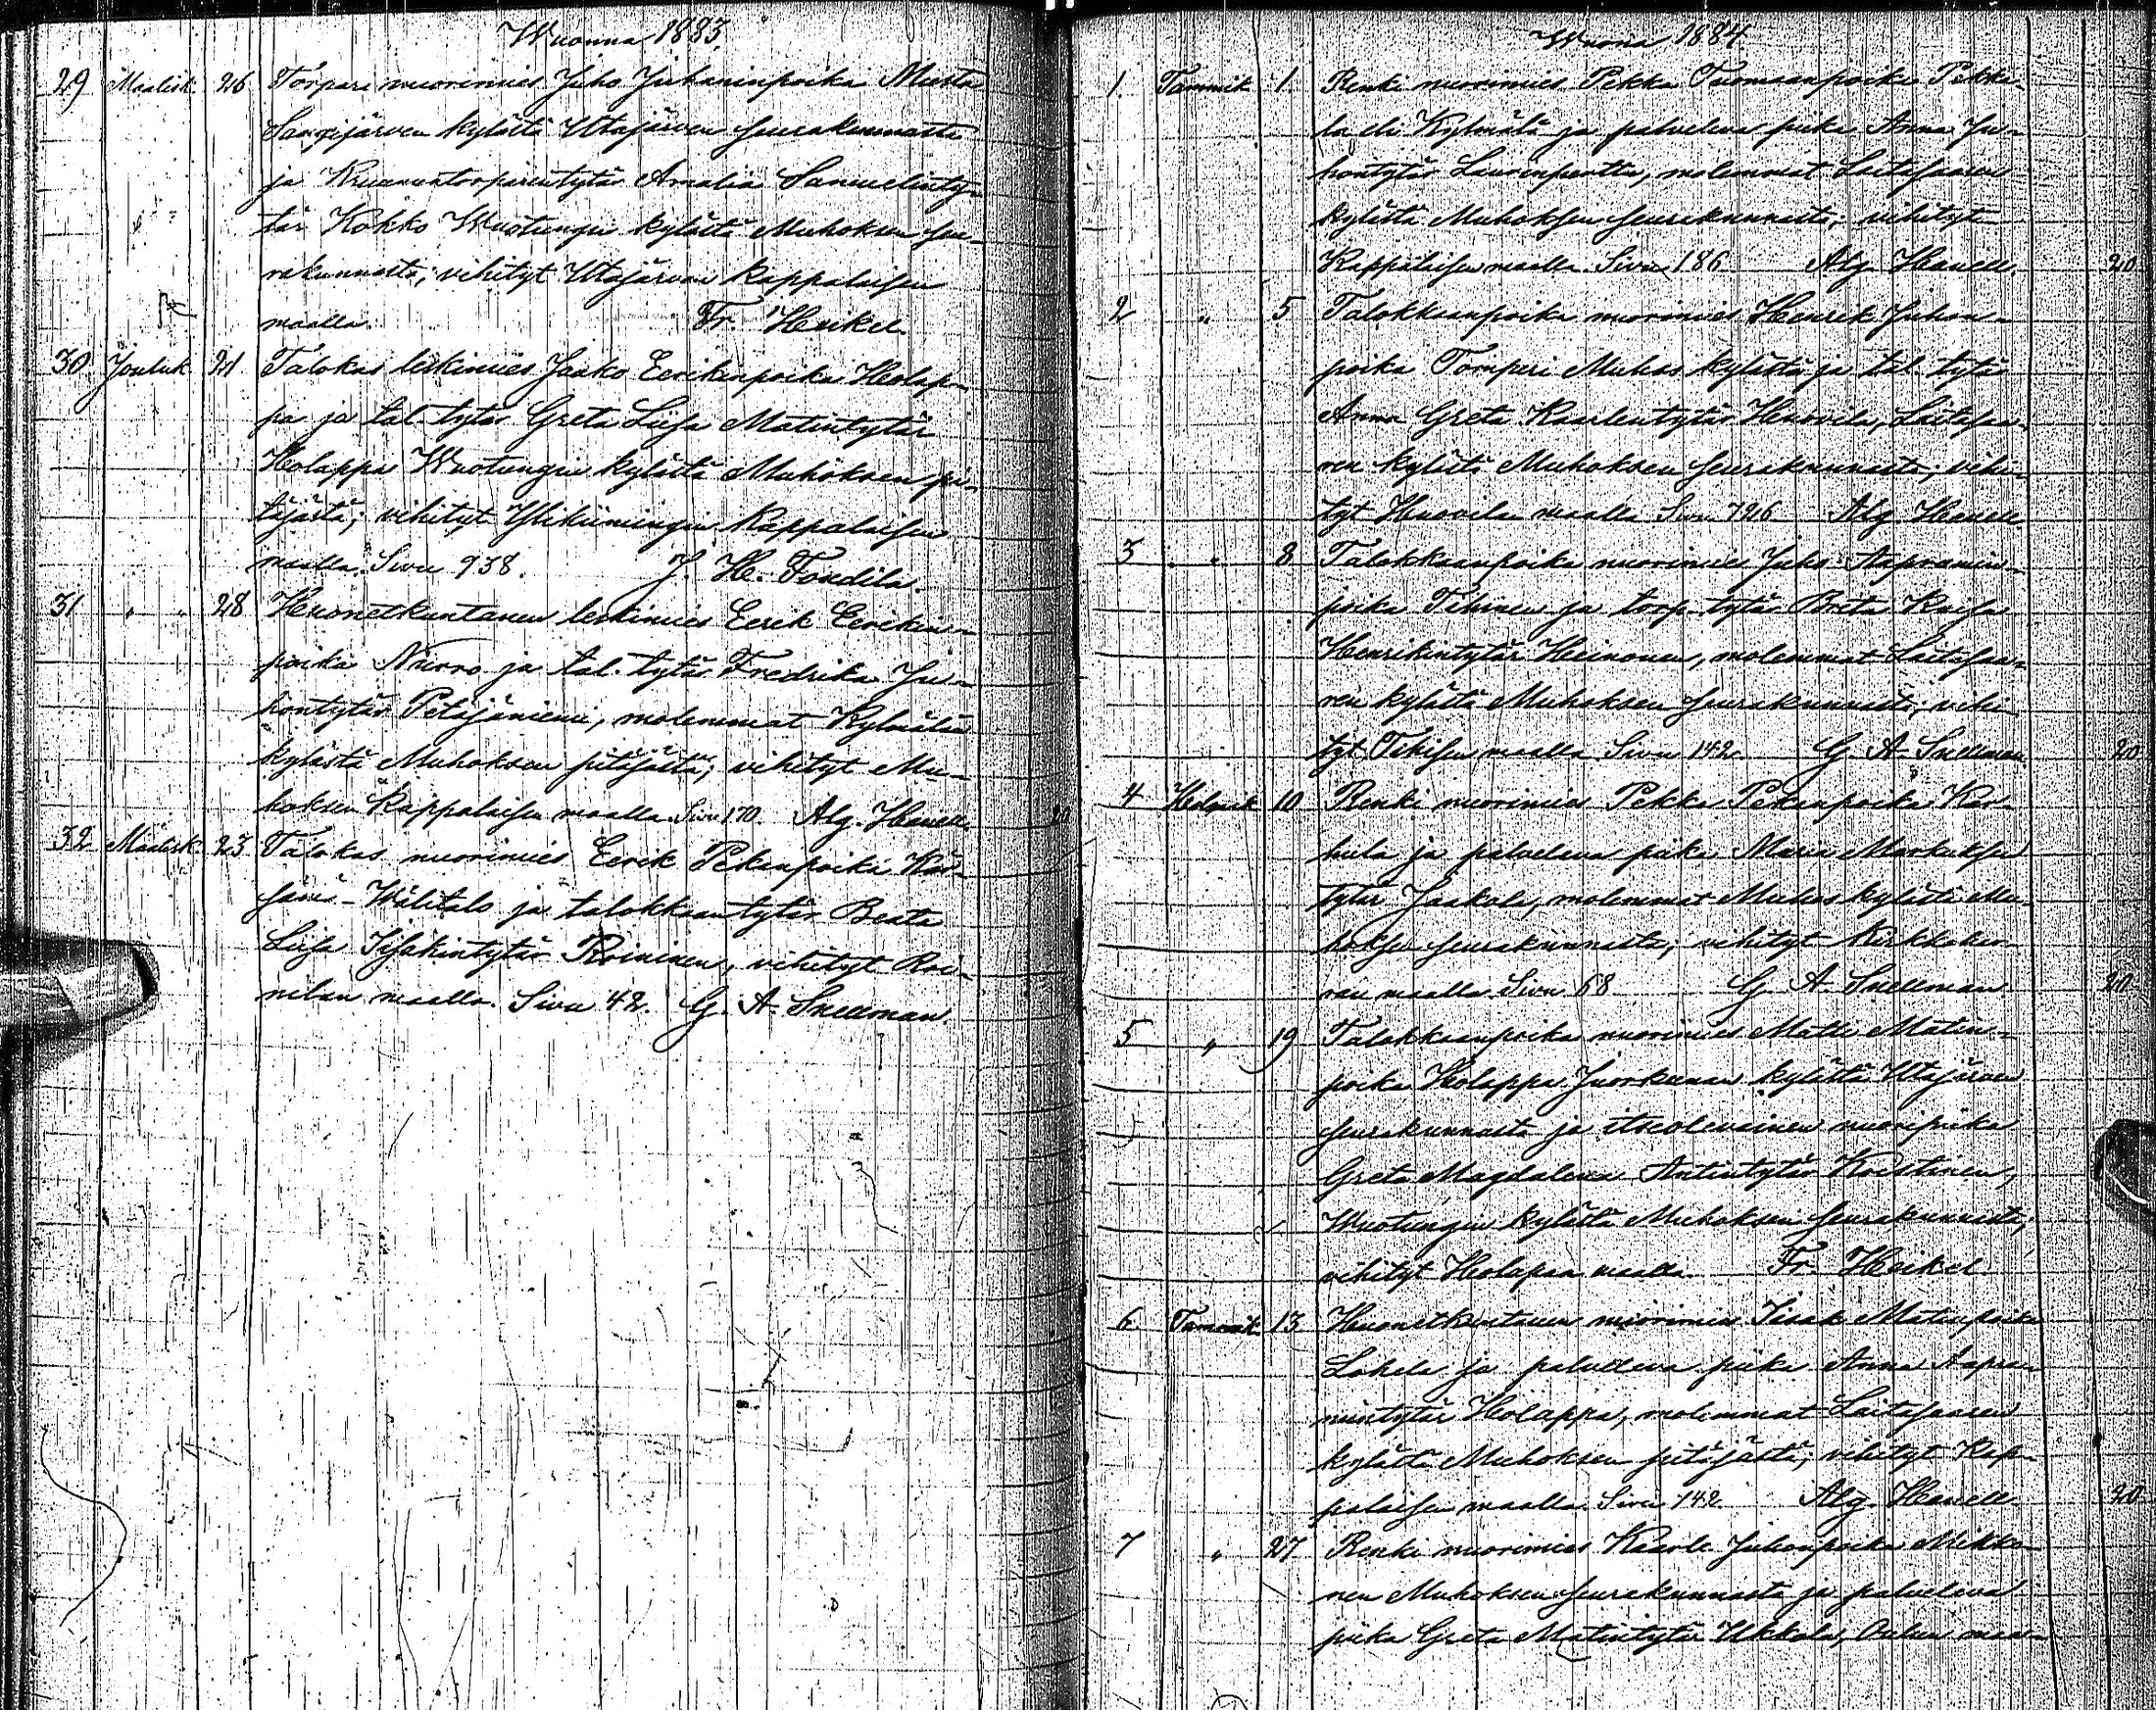 Wuonna 1883.
29 Maalisk. 26 Torpari nuorimies Juho Juhaninpoika Musta
Sangijärven kylästä Utajärven seurakunnasta
ja Kruununtorparintytär Amalia Samuelinty-
tär Kokko Wuotungin kylästä Muhoksen seu-
rakunnasta; vihityt Utajärven kappalaisen
maalla. Fr. Heikel.
30 Jouluk. 21 Talokas leskimies Jaako Eerikinpoika Holap-
pa ja tal. tytär Greta Liisa Matintytär
Holappa Wuotungin kylästä Muhoksen pi-
täjästä; vihityt Ylikiimingin Kappalaisen
maalla. Sivu 938. J. H. Tondila.
31 " " 28 Huonetkuntanen leskimies Eerik Eerikin-
poika Nurro ja tal. tytär Fredrika Ju-
hontytär Petäjäniemi, molemmat Kylmälän
kylästä Muhoksen pitäjästä; vihityt Mu-
hoksen Kappalaisen maalla. Sivu 170. Alg. Havell. 20
32 Maalisk. 23 Talokas nuorimies Eerik Pekanpoika
Wälitalo ja talokkaantytär Beata
Liisa Iisakintytär Roininen, vihityt Roi-
nilan maalla. Sivu 42. G. A. Snellman.
Wuona 1884
1. Tammik. 1. Renki nuorimies Pekka Tuomaanpoika Pekka-
la eli Kylmälä ja palveleva piika Anna Ju-
hontytär Laurinpertti, molemmat Laitasaaren
kylästä Muhoksen seurakunnasta; vihityt
Kappalaisen maalla. Sivu 186 Alg. Havell. 20
2 " 5 Talokkaanpoika nuorimies Henrik Juhon-
poika Tomperi Muhos kylästä ja tal. tytär
Anna Greta Kaarlentytär Huovila, Laitasaa-
ren kylästä Muhoksen seurakunnasta; vihi-
tyt Huovilan maalla Sivu 726 Alg. Havell
3 " 8 Talokkaanpoika nuorimies Juho Aapramin-
poika Tihinen ja torp. tytär Breta Kaisa
Henrikintytär Heinonen, molemmat Laitasaa-
ren kylästä Muhoksen seurakunnasta; vihi-
tyt Tihisen maalla. Sivu 142. G. A. Snellman 20
4 Helmik 10 Renki nuorimies Pekka Pekanpoika Kar-
hula ja palveleva piika Maria Markuksen
tytär Jaakola, molemmat Muhos kylästä Mu-
hoksen seurakunnasta; vihityt Kirkkoher-
ran maalla. Sivu 68 G. A. Snellman 20
5 " 19 Talokkaanpoika nuorimies Matti Matin-
poika Holappa Juorkunan kylästä Utajärven
seurakunnasta ja itseolevainen nuoripiika
Greta Magdalena Antintytär Koistinen,
Wuotungin kylästä Muhoksen seurakunnasta;
vihityt Holapan maalla. Fr. Heikel
6. Tammik 13 Huonetkuntanen nuorimies Iisak Matinpoika
Lohela ja palveleva piika Anna Aapra-
mintytär Holappa, molemmat Laitasaaren
kylästä Muhoksen pitäjästä; vihityt Kap-
palaisen maalla. Sivu 142. Alg. Havell. 20
7 " 27 Renki nuorimies Kaarle Juhonpoika Mikko-
nen Muhoksen seurakunnasta ja palveleva
piika Greta Matintytär Ukkola, Oulun maa-